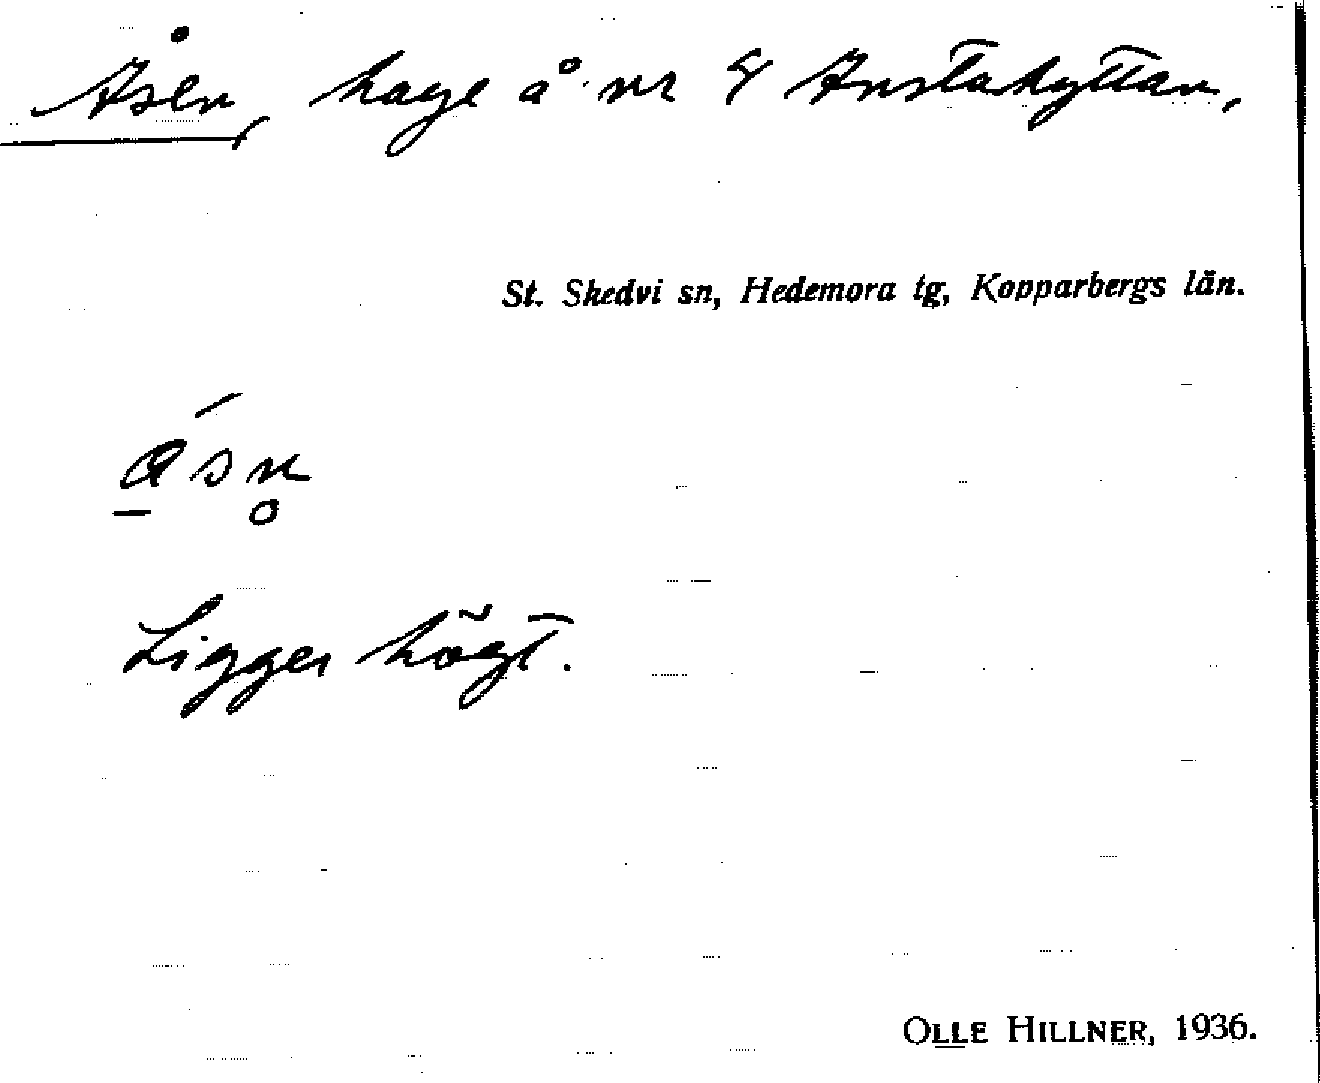 Åsen, hage å nr 8 Anstahyttan,
St. Skedvi sn, Hedemora tg, Kopparbergs län.
Ligger högt.
OLLE HILLNER, 1936.